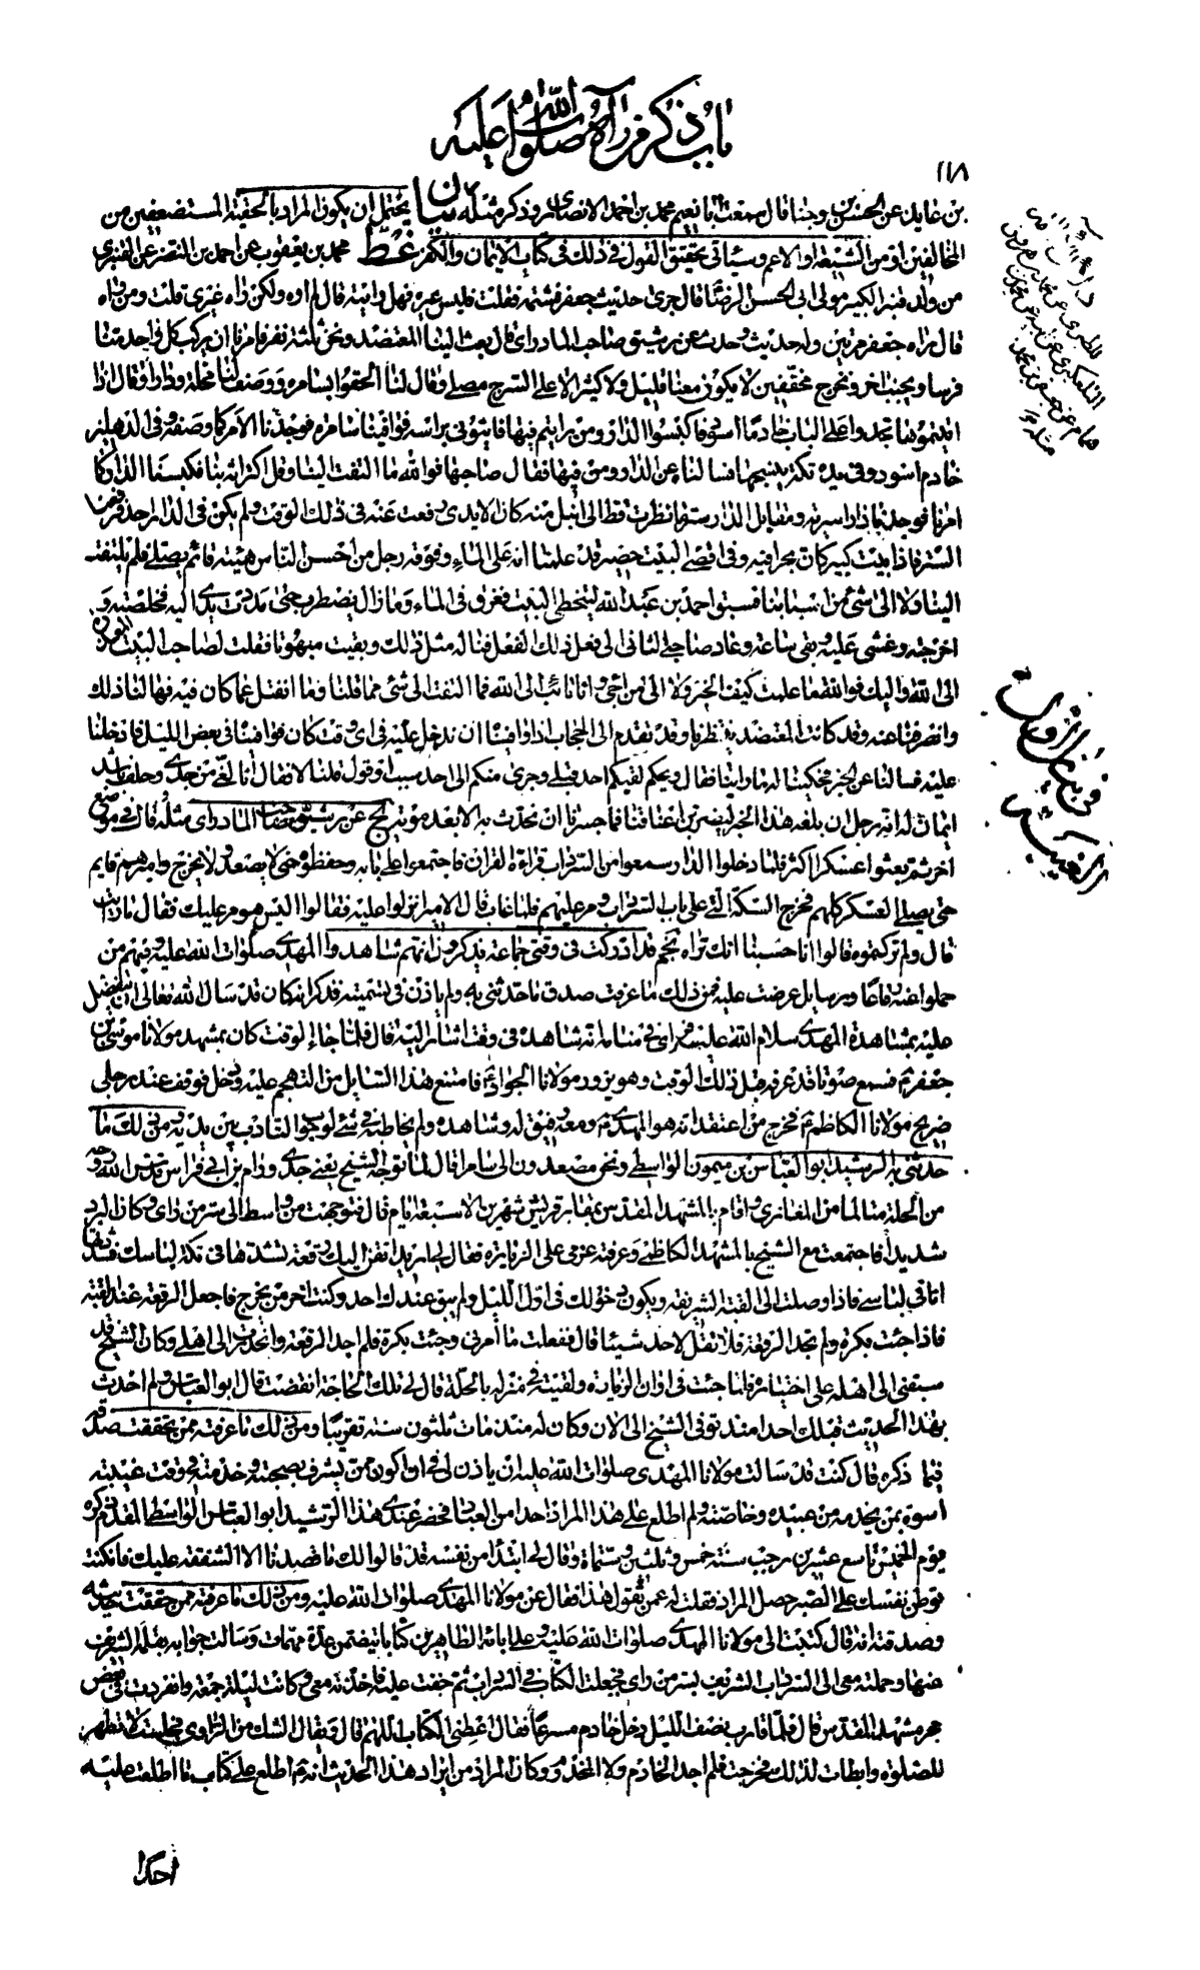 باب ذكر من رآه صلوات الله عليه
١١٨
بن عايذ عن الحسن بن وجنا قال سمعت ابا نعيم محمد بن احمد الانصاري وذكر مثله بيان يحتمل ان يكون المراد بالحقية المستضعفين من
المخالفين او من الشيعة او الاعم وسيأتي تحقيق القول في ذلك في كتاب الايمان والكفر غط محمد بن يعقوب عن احمد بن النضر عن القنبري
من ولد قنبر الكبير مولى ابي الحسن الرضا قال جرى حديث جعفر فشتمه فقلت فليس غيره فهل رايته قال لم اره ولكن راه غيري قلت ومن راه
قال راه جعفر مرتين وله حديث وحدث عن رشيق صاحب المادراى قال بعث الينا المعتضد ونحن ثلثة نفر فامرنا ان يركب كل واحد منا
فرسا ويجنب اخر ونخرج مخففين لا يكون معنا قليل ولا كثير الا على السرج مصلى وقال لنا الحقوا بسامره ووصف لنا محلة ودارا وقال اذا
اتيتموها تجدوا على الباب خادما اسود فاكبسوا الدار ومن رايتم فيها فاتوني براسه فوافينا سامره فوجدنا الامر كما وصفه وفي الدهليز
خادم اسود وفي يده تكة ينسجها فسالناه عن الدار ومن فيها فقال صاحبها فوالله ما التفت الينا وقل اكتراثه بنا فكبسنا الدار كما
امرنا فوجدنا دارا سرية ومقابل الدار ستر ما نظرت قط الى انبل منه كان الايدي رفعت عنه في ذلك الوقت ولم يكن في الدار احد فرفعنا
الستر فاذا بيت كبير كان بحرا فيه وفي اقصى البيت حصير قد علمنا انه على الماء وفوقه رجل من احسن الناس هيئة قائم يصلي فلم يلتفت
الينا ولا الى شئ من اسبابنا فسبق احمد بن عبد الله ليتخطى البيت فغرق في الماء وما زال يضطرب حتى مددت يدي اليه فخلصته و
اخرجته وغشي عليه وبقي ساعة وعاد صاحبي الثاني الى فعل ذلك الفعل فناله مثل ذلك وبقيت مبهوتا فقلت لصاحب البيت المعذرة
الى الله واليك فوالله ما علمت كيف الخبر ولا الى من اجئ وانا تائب الى الله فما التفت الى شئ مما قلنا وما انفتل عما كان فيه فهالنا ذلك
وانصرفنا عنه وقد كان المعتضد ينتظرنا وقد تقدم الى الحجاب اذا وافيناه ان ندخل عليه في اى وقت كان فوافيناه في بعض الليل فادخلنا
عليه فسالنا عن الخبر فحكينا له ما راينا فقال ويحكم لقيكم احد قبلي وجرى منكم الى احد سبب او قول قلنا لا فقال انا نفي من جدي وحلف باشد
ايمان له انه رجل ان بلغه هذا الخبر ليضربن اعناقنا فما جسرنا ان نحدث به الا بعد موته يج عن رشيق صاحب المادراى مثله وقال في موضع
اخر ثم بعثوا عسكرا اكثر فلما دخلوا الدار سمعوا من السرداب قراءة القران فاجتمعوا على بابه وحفظوه حتى لا يصعد ولا يخرج واميرهم قايم
حتى يصل العسكر كلهم فخرج من السكة التي على باب السرداب ومر عليهم فلما غاب قال الامير انزلوا عليه فقالوا اليس هو مر عليك فقال ما رايت
قال ولم تركتموه قالوا انا حسبنا انك تراه نجم قد ادركت في وقتي جماعة يذكرون انهم شاهدوا المهدي صلوات الله عليه وفيهم من
حملوا عنه رقاعا ورسايل عرضت عليه فمن ذلك ما عرفت صدق ما حدثني به ولم ياذن في تسميته فذكر انه كان قد سال الله تعالى ان يتفضل
عليه بمشاهدة المهدي سلام الله عليه فراى في منامه انه شاهده في وقت اشار اليه قال فلما جاء الوقت كان بمشهد مولانا موسى بن
جعفر ع فسمع صوتا قد عرفه قبل ذلك الوقت وهو يزور مولانا الجواد ع فامتنع هذا السايل من التهجم عليه ودخل فوقف عند رجلي
ضريح مولانا الكاظم ع فخرج من اعتقد انه هو المهدي ع ومعه رفيق له وشاهده ولم يخاطبه في شئ لوجوب التادب بين يديه ومن ذلك ما
حدثني به الرشيد ابو العباس بن ميمون الواسطي ونحن مصعدون الى سامرا قال لما توجه الشيخ يعني جدي ورام بن ابي فراس قدس الله روحه
من الحلة متالما من المغازي واقام بالمشهد المقدس بمقابر قريش شهرين الا سبعة ايام قال فتوجهت من واسط الى سر من راى وكان البرد
شديدا فاجتمعت مع الشيخ بالمشهد الكاظمي وعرفته عزمي على الزيارة فقال لي اريد انفذ اليك رقعة تشدها في تكة لباسك فشددتها
انا في لباسي فاذا وصلت الى القبة الشريفة ويكون دخولك في اول الليل ولم يبق عندك احد وكنت اخر من يخرج فاجعل الرقعة عند القبة
فاذا جئت بكرة ولم تجد الرقعة فلا تقل لاحد شيئا قال ففعلت ما امرني وجئت بكرة فلم اجد الرقعة وانحدرت الى اهلي وكان الشيخ قد
سبقني الى اهله على اختياره فلما جئت في اوان الزيارة ولقيته في منزله بالحلة قال لي تلك الحاجة انقضت قال ابو العباس ولم احدث
بهذا الحديث قبلك احدا منذ توفي الشيخ الى الان وكان له منذ مات ثلثون سنة تقريبا ومن ذلك ما عرفته ممن تحققت صدقه
فيما ذكره قال كنت قد سالت مولانا المهدي صلوات الله عليه ان ياذن لي في ان اكون ممن يشرف بصحبته وخدمته في وقت غيبته
اسوة بمن يخدمه من عبيده وخاصته ولم اطلع على هذا المراد احدا من العباد فحضر عندي هذا الرشيد ابو العباس الواسطي المقدم ذكره
يوم الخميس تاسع عشرين رجب سنة خمس وثلثين وستماة وقال لي ابتداء من نفسه قد قالوا لك ما قصدنا الا الشفقة عليك فان كنت
توطن نفسك على الصبر حصل المراد فقلت له عمن تقول هذا فقال عن مولانا المهدي صلوات الله عليه ومن ذلك ما عرفته ممن حققت حديثه
وصدقته انه قال كتبت الى مولانا المهدي صلوات الله عليه وعلى ابائه الطاهرين كتابا يتضمن عدة مهمات وسالت جوابه بقلمه الشريف
عنها وحملته معي الى السرداب الشريف بسر من راى فجعلت الكتاب في السرداب ثم خفت عليه فاخذته معي وكانت ليلة جمعة وانفردت في بعض
حجر مشهد المقدس قال فلما قارب نصف الليل دخل خادم مسرعا فقال اعطني الكتاب اللهم قال ويقال الشك من الراوي فجلست لا تطهر
للصلوة وابطات لذلك فخرجت فلم اجد الخادم ولا المخدوم وكان المراد من ايراد هذا الحديث انه ع اطلع على كتاب ما اطلعت عليه
احدا